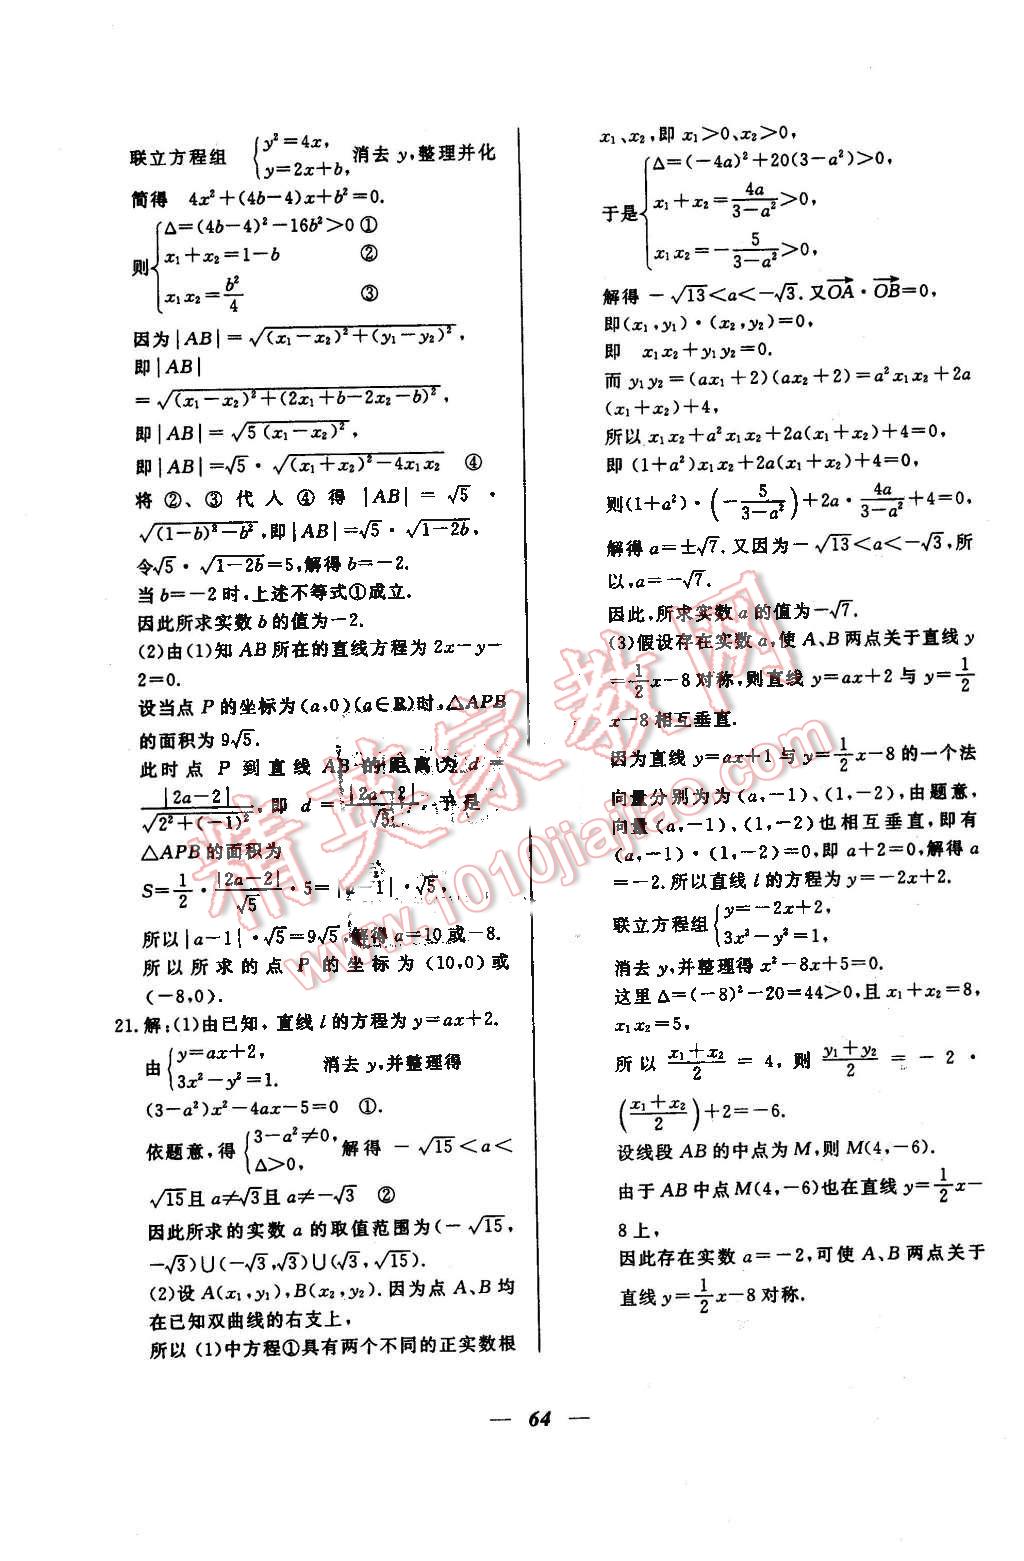 联立方程组 {y²=4x, y=2x+b, 消去 y,整理并化
简得 4x²+(4b−4)x+b²=0.
则{Δ=(4b−4)²−16b²>0 ①
x₁+x₂=1−b ②
x₁x₂=b²/4 ③
因为|AB|=√((x₁−x₂)²+(y₁−y₂)²),
即|AB|
=√((x₁−x₂)²+(2x₁+b−2x₂−b)²),
即|AB|=√(5(x₁−x₂)²),
即|AB|=√5·√((x₁+x₂)²−4x₁x₂) ④
将 ②、③ 代 人 ④ 得 |AB|=√5·
√((1−b)²−b²),即|AB|=√5·√(1−2b),
令√5·√(1−2b)=5,解得 b=−2.
当 b=−2 时,上述不等式①成立.
因此所求实数 b 的值为−2.
(2)由(1)知 AB 所在的直线方程为 2x−y−
2=0.
设当点 P 的坐标为(a,0)(a∈R)时,△APB
的面积为 9√5.
此时点 P 到直线 AB 的距离为 d=
|2a−2|/√(2²+(−1)²),即 d=|2a−2|/√5,于是
△APB 的面积为
S=1/2·|2a−2|/√5·5=|a−1|·√5,
所以|a−1|·√5=9√5,解得 a=10 或−8.
所以所求的点 P 的坐标为(10,0)或
(−8,0).
21.解:(1)由已知,直线 l 的方程为 y=ax+2.
由{y=ax+2, 3x²−y²=1. 消去 y,并整理得
(3−a²)x²−4ax−5=0 ①.
依题意,得{3−a²≠0, Δ>0, 解得 −√15<a<
√15且 a≠√3且 a≠−√3 ②
因此所求的实数 a 的取值范围为(−√15,
−√3)∪(−√3,√3)∪(√3,√15).
(2)设 A(x₁,y₁),B(x₂,y₂).因为点 A、B 均
在已知双曲线的右支上,
所以(1)中方程①具有两个不同的正实数根
x₁、x₂,即 x₁>0、x₂>0,
于是{Δ=(−4a)²+20(3−a²)>0,
x₁+x₂=4a/(3−a²)>0,
x₁x₂=−5/(3−a²)>0,
解得 −√13<a<−√3.又OA→·OB→=0,
即(x₁,y₁)·(x₂,y₂)=0,
即 x₁x₂+y₁y₂=0.
而 y₁y₂=(ax₁+2)(ax₂+2)=a²x₁x₂+2a
(x₁+x₂)+4,
所以 x₁x₂+a²x₁x₂+2a(x₁+x₂)+4=0,
即 (1+a²)x₁x₂+2a(x₁+x₂)+4=0,
则(1+a²)·(−5/(3−a²))+2a·4a/(3−a²)+4=0,
解得 a=±√7.又因为−√13<a<−√3,所
以,a=−√7.
因此,所求实数 a 的值为−√7.
(3)假设存在实数 a,使 A、B 两点关于直线 y
=1/2x−8 对称,则直线 y=ax+2 与 y=1/2
x−8 相互垂直.
因为直线 y=ax+1 与 y=1/2x−8 的一个法
向量分别为为(a,−1)、(1,−2),由题意,
向量(a,−1)、(1,−2)也相互垂直,即有
(a,−1)·(1,−2)=0,即 a+2=0,解得 a
=−2.所以直线 l 的方程为 y=−2x+2.
联立方程组{y=−2x+2, 3x²−y²=1,
消去 y,并整理得 x²−8x+5=0.
这里 Δ=(−8)²−20=44>0,且 x₁+x₂=8,
x₁x₂=5,
所以 (x₁+x₂)/2=4, 则 (y₁+y₂)/2=−2·
((x₁+x₂)/2)+2=−6.
设线段 AB 的中点为 M,则 M(4,−6).
由于 AB 中点 M(4,−6)也在直线 y=1/2x−
8 上,
因此存在实数 a=−2,可使 A、B 两点关于
直线 y=1/2x−8 对称.
— 64 —
精英家教网
www.1010jiajiao.com